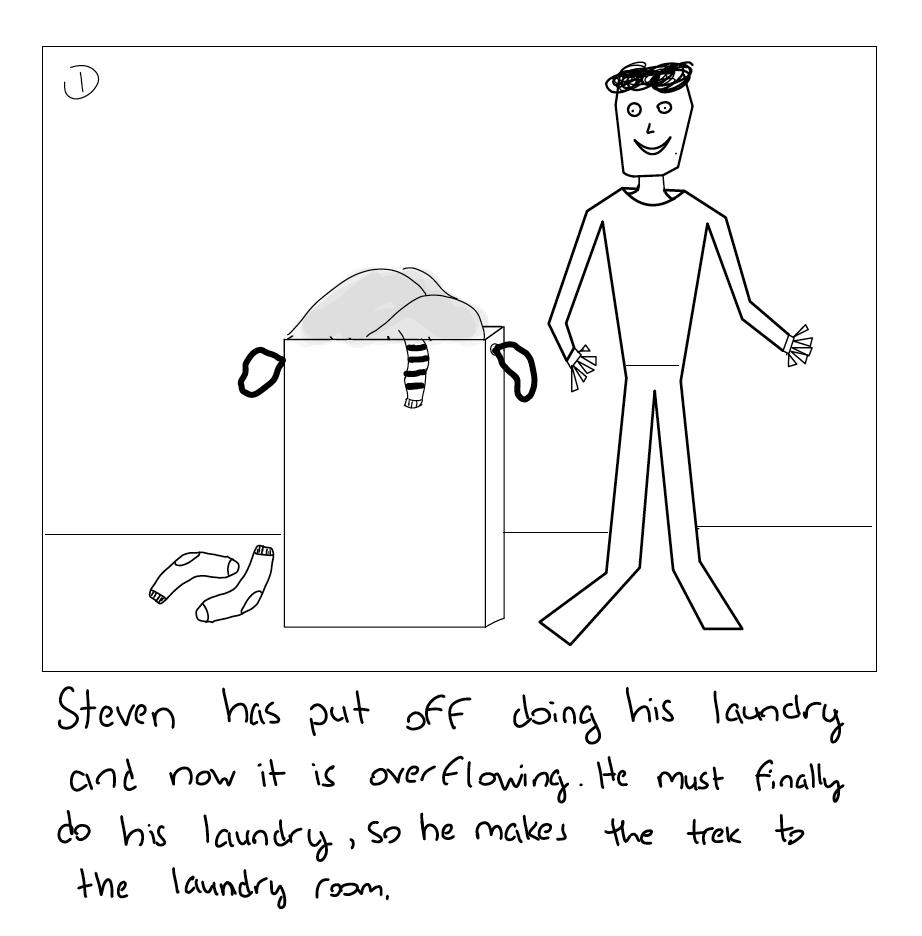 1
Steven has put off doing his laundry
and now it is overflowing. He must finally
do his laundry, so he makes the trek to
the laundry room.